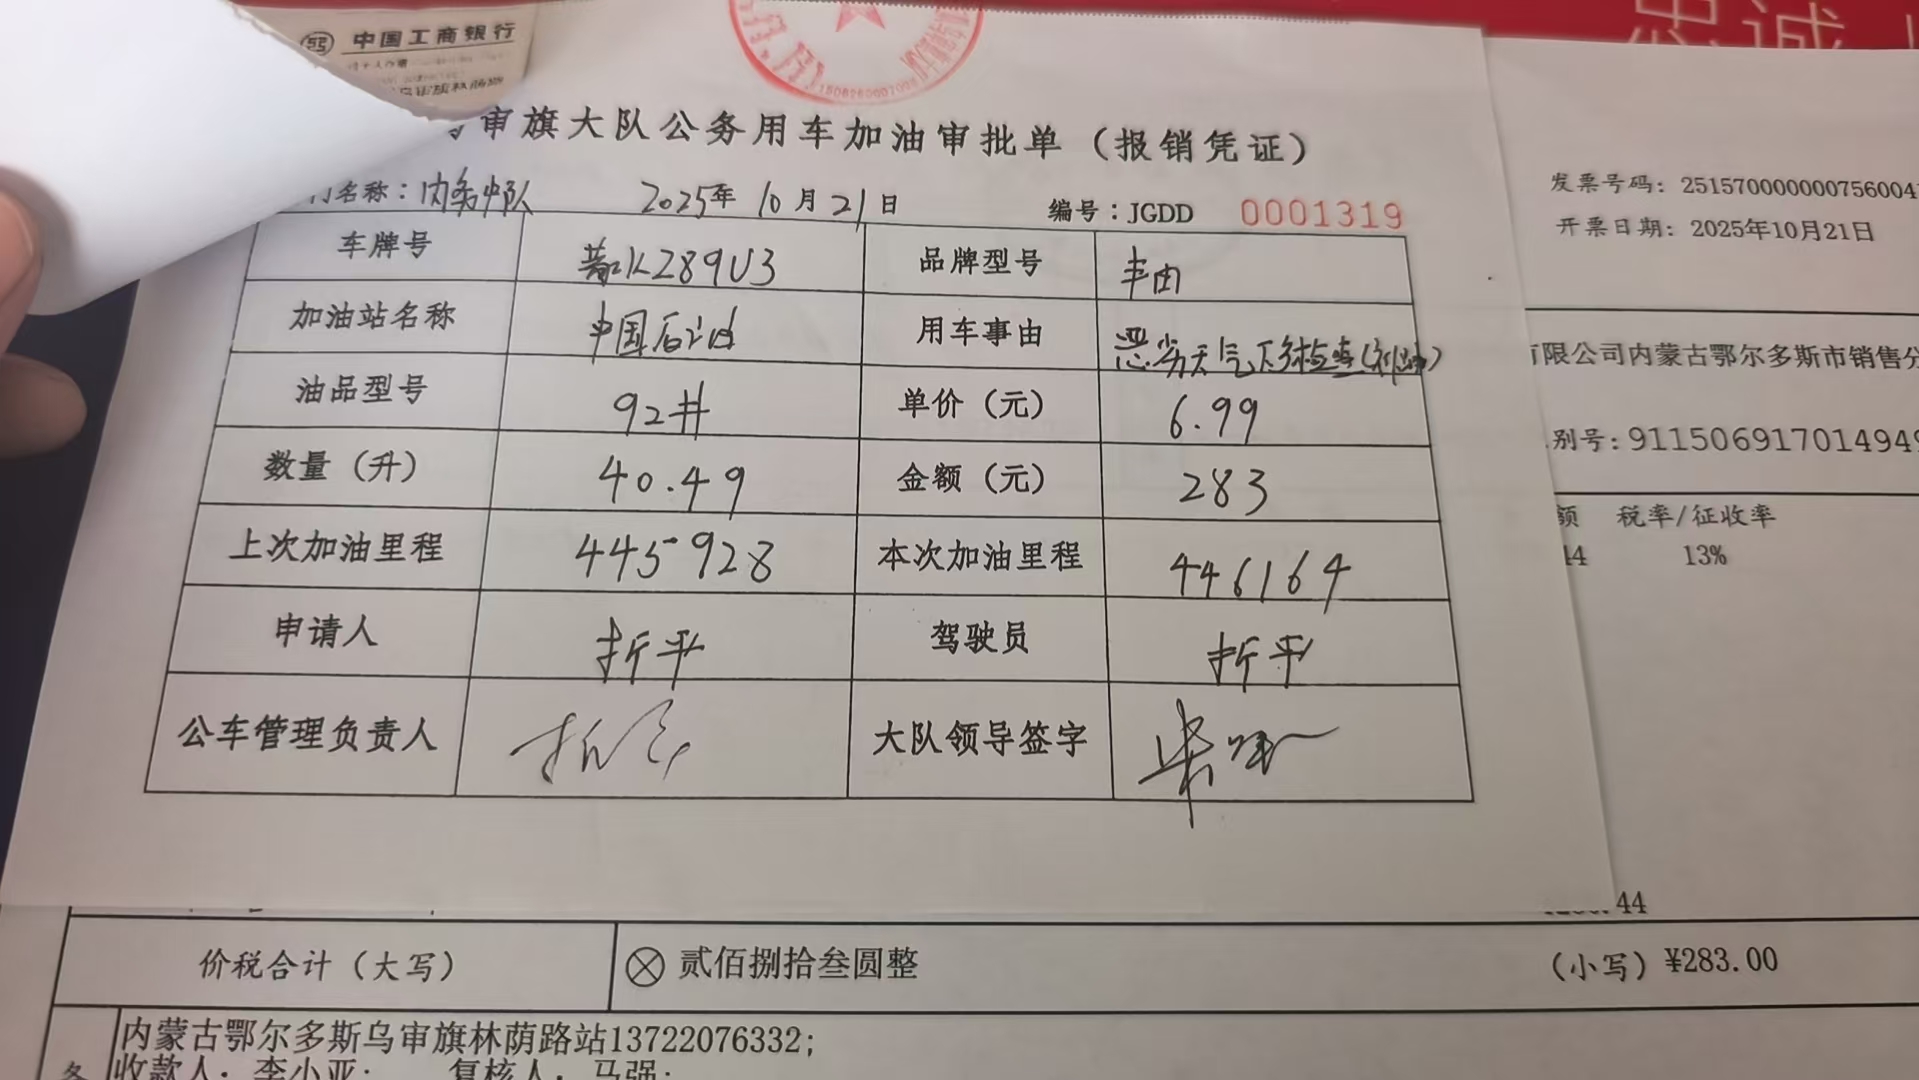 忠诚
中国工商银行
审旗大队公务用车加油审批单（报销凭证）
门名称：内务中队 2025年10月21日 编号：JGDD 0001319
车牌号 蒙K289U3 品牌型号 丰田
加油站名称 中国石油 用车事由 恶劣天气下乡检查(加油)
油品型号 92# 单价（元） 6.99
数量（升） 40.49 金额（元） 283
上次加油里程 445928 本次加油里程 446164
申请人 折平 驾驶员 折平
公车管理负责人 大队领导签字
发票号码：251570000000756004
开票日期：2025年10月21日
有限公司内蒙古鄂尔多斯市销售分
别号：911506917014949
额 税率/征收率
44 13%
.44
价税合计（大写） ⊗ 贰佰捌拾叁圆整 （小写）¥283.00
内蒙古鄂尔多斯乌审旗林荫路站13722076332;
收款人：李小亚; 复核人：马强;